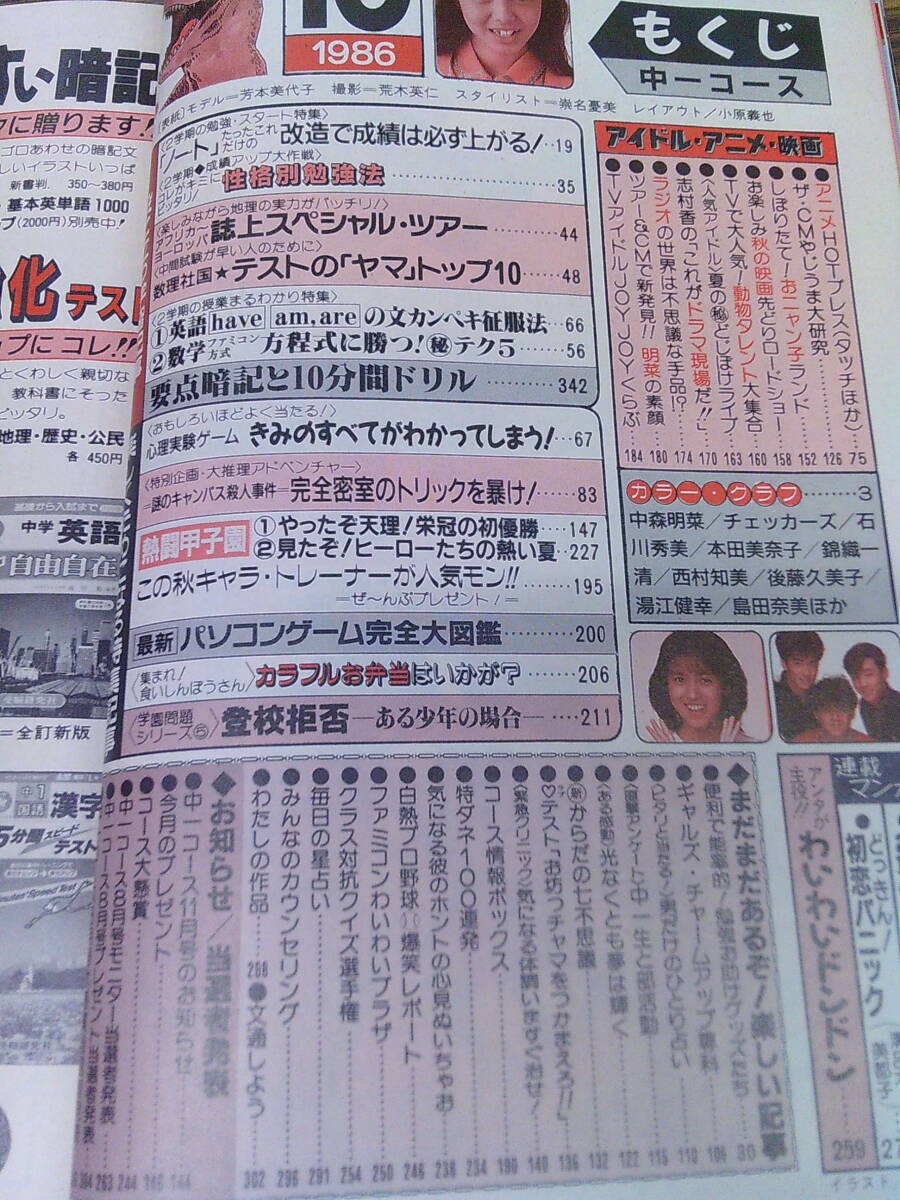 10
1986
もくじ
中一コース
〈表紙〉モデル＝芳本美代子 撮影＝荒木英仁 スタイリスト＝崇名憂美 レイアウト／小原義也
〈2学期の勉強・スタート特集〉
「ノート」たったこれだけの改造で成績は必ず上がる！…19
〈2学期◆成績アップ大作戦〉
コレがキミにピッタリ！ 性格別勉強法……35
〈楽しみながら地理の実力がバッチリ！〉
アメリカ〜ヨーロッパ 誌上スペシャル・ツアー……44
〈中間試験が早い人のために〉
数理社国★テストの「ヤマ」トップ10…48
〈2学期の授業まるわかり特集〉
①英語 have am, are の文カンペキ征服法…66
②数学 ファミコン方式 方程式に勝つ！㊙テク5……56
要点暗記と10分間ドリル……342
〈おもしろいほどよく当たる！〉
心理実験ゲーム きみのすべてがわかってしまう！…67
〈特別企画・大推理アドベンチャー〉
＝謎のキャンバス殺人事件＝完全密室のトリックを暴け！……83
熱闘甲子園 ①やったぞ天理！栄冠の初優勝……147
②見たぞ！ヒーローたちの熱い夏…227
この秋キャラ・トレーナーが人気モン!!……195
＝ぜ〜んぶプレゼント！＝
最新 パソコンゲーム完全大図鑑……200
〈集まれ！食いしんぼうさん〉 カラフルお弁当はいかが？……206
〈学園問題シリーズ⑤〉 登校拒否―ある少年の場合―……211
アイドル・アニメ・映画
●アニメHOTプレス（タッチほか） 75
●ザ・CMやじうま大研究 126
●しぼりたて！おニャン子ランド 152
●お楽しみ秋の映画先どりロードショー 158
●TVで大人気！動物タレント大集合 160
●〈人気アイドル〉夏の㊙とじぼけライブ 163
●志村香の「これがドラマ現場だ!!」 170
●ラジオの世界は不思議な手品!? 174
●ツアー＆CMで新発見!! 明菜の素顔 180
●TVアイドルJOY JOYくらぶ 184
カラー・グラフ……3
中森明菜／チェッカーズ／石
川秀美／本田美奈子／錦織一
清／西村知美／後藤久美子／
湯江健幸／島田奈美ほか
◆まだまだあるぞ！楽しい記事
●便利で能率的！勉強お助けグッズたち 30
●ギャルズ・チャームアップ専科 106
●〈ピタリと当たる！〉男だけのひとり占い 110
●〈直撃アンケート〉中一生と部活動 116
●〈ある感動〉光なくとも夢は輝く 122
●㊟からだの七不思議 132
●♡テスト「お坊っチャマをつかまえろ!!」 136
●〈緊急クリニック〉気になる体調いますぐ治せ！ 140
●コース情報ボックス 190
●特ダネ100連発 234
●気になる彼のホントの心見ぬいちゃお 238
●白熱プロ野球 爆笑レポート 246
●ファミコンわいわいプラザ 250
●クラス対抗クイズ選手権 254
●毎日の星占い 291
●みんなのカウンセリング 296
●わたしの作品 288 ●文通しよう 302
◆お知らせ／当選者発表
●中一コース11月号のお知らせ 144
●今月のプレゼント
●コース大懸賞
●中一コース8月号モニター当選者発表 244
●中一コース8月号プレゼント当選者発表 263
連載マンガ
アンタが主役!! わいわいドンドン 259
●どっきん！初恋パニック
イラスト
すい暗記
に贈ります!!
ゴロあわせの暗記文
しいイラストいっぱ
新書判. 350〜380円
・基本英単語1000
プ(2000円)別売中！
化テスト
ップにコレ!!
とくわしく親切な
教科書にそった
ピッタリ。
地理・歴史・公民
各 450円
基礎から入試まで
中学 英語
自由自在
＝全訂新版
中1
国語 漢字
5分間 スピードテスト
5 Minutes' Speed Test